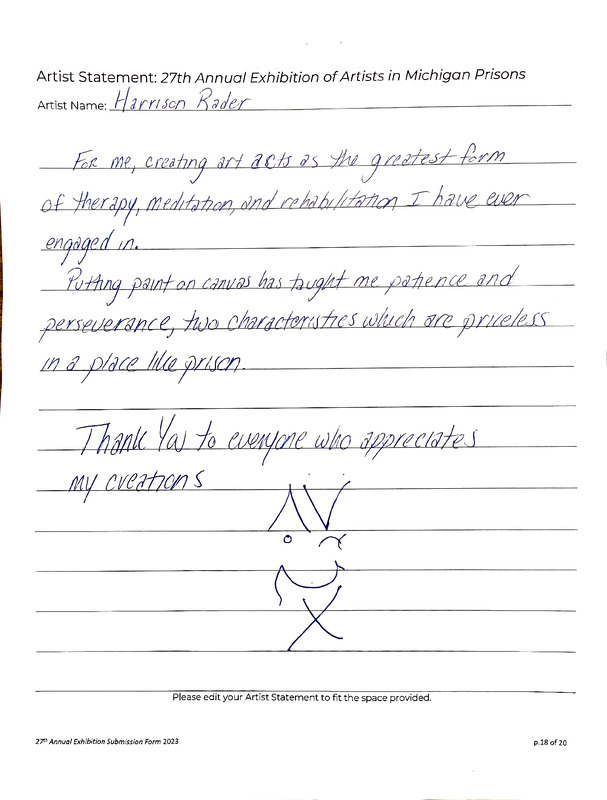 Artist Statement: 27th Annual Exhibition of Artists in Michigan Prisons
Artist Name: Harrison Rader
For me, creating art acts as the greatest form
of therapy, meditation, and rehabilitation I have ever
engaged in.
Putting paint on canvas has taught me patience and
perseverance, two characteristics which are priceless
in a place like prison.
Thank You to everyone who appreciates
my creations
Please edit your Artist Statement to fit the space provided.
27th Annual Exhibition Submission Form 2023
p.18 of 20